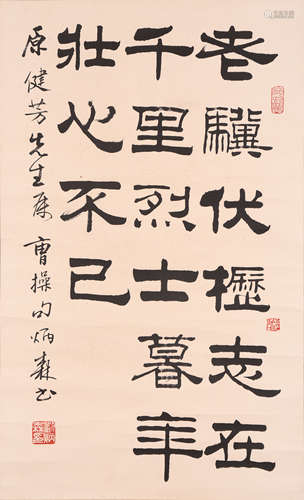 老驥伏櫪志在
千里烈士暮年
壯心不已
原健芳先生属 曹操句炳森书